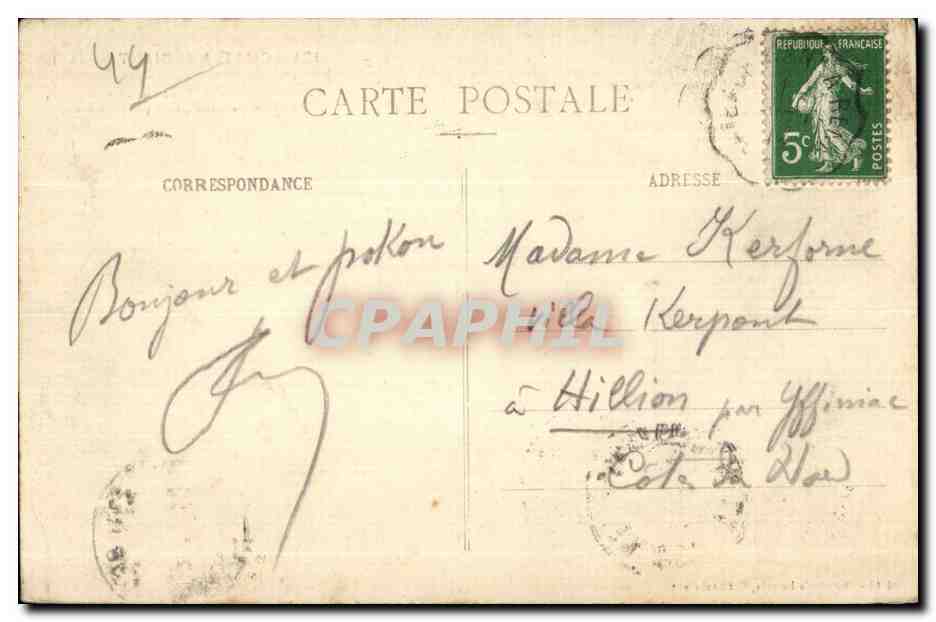 44
CARTE POSTALE
CORRESPONDANCE
ADRESSE
REPUBLIQUE FRANÇAISE
5c
POSTES
Bonjour et pokou
Madame Kerforne
villa Kerpont
à Hillion par Yffiniac
Côtes du Nord
CPAPHIL